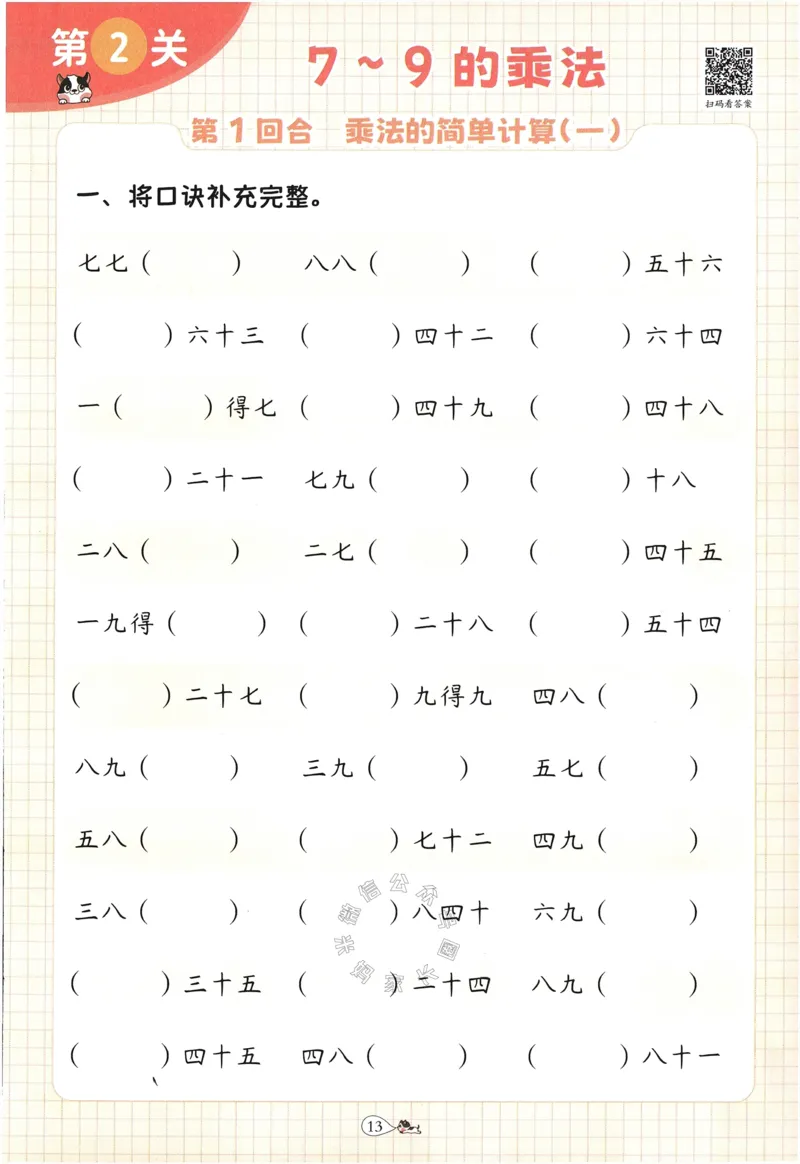 第2关
7~9的乘法
扫码看答案
第1回合 乘法的简单计算(一)
一、将口诀补充完整。
七七( ) 八八( ) ( )五十六
( )六十三 ( )四十二 ( )六十四
一( )得七 ( )四十九 ( )四十八
( )二十一 七九( ) ( )十八
二八( ) 二七( ) ( )四十五
一九得( ) ( )二十八 ( )五十四
( )二十七 ( )九得九 四八( )
八九( ) 三九( ) 五七( )
五八( ) ( )七十二 四九( )
三八( ) ( )八四十 六九( )
( )三十五 ( )二十四 八九( )
( )四十五 四八( ) ( )八十一
13